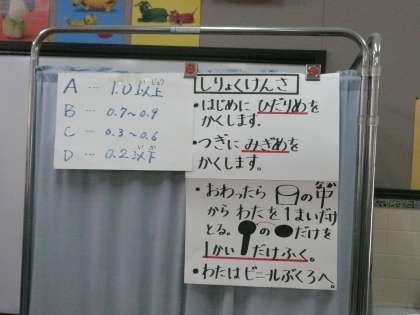 A … 1.0以上
B … 0.7~0.9
C … 0.3~0.6
D … 0.2以下
しりょくけんさ
・はじめに ひだりめを
かくします。
・つぎに みぎめを
かくします。
・おわったら の中
から わたを1まいだけ
とる。 の だけを
1かいだけふく。
・わたはビニールぶくろへ。